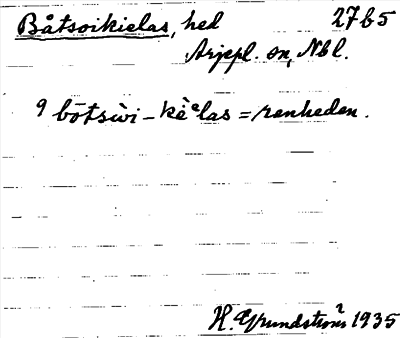 Båtsoikielas, hed 27b5
Arjepl. sn, Nbl.
9 bōtsùi-kèᵉlas = renheden.
H. Grundström 1935